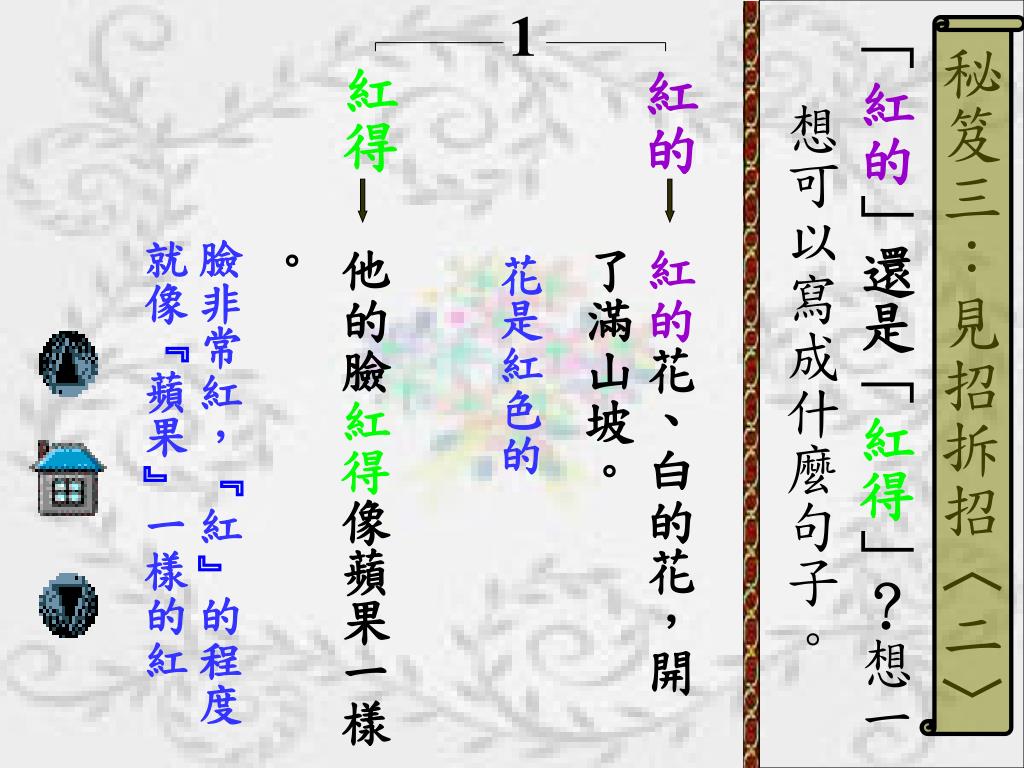 秘笈三：見招拆招〈二〉
「紅的」還是「紅得」？想一
想可以寫成什麼句子。
1
紅的
紅的花、白的花，開
了滿山坡。
花是紅色的
紅得
他的臉紅得像蘋果一樣
。
臉非常紅，『紅』的程度
就像『蘋果』一樣的紅